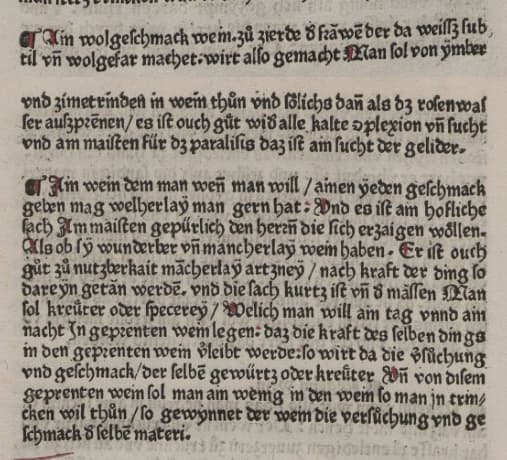 ¶ Ain wolgeschmack wein. zů zierde d̄ frāwē der da weissz sub,
til vn̄ wolgefar machet. wirt also gemacht Man sol von ymber
vnd zimetrinden in wein thůn vnd sölichs dañ als dz rosenwas
ser auszprēnen / es ist ouch gůt wid̄ alle kalte ꝯplexion vn̄ sucht
vnd am maisten für dz paralisis daz ist ain sucht der gelider.
¶ Im wein dem man weñ man will / ainen yeden geschmack
geben mag welherlaÿ man gern hat: Vnd es ist am hofliche
sach Im maisten gepürlich den hereñ die sich erzaigen wöllen.
Als ob sÿ wunderber vn̄ mancherlaÿ wein haben. Er ist ouch
gůt zů nutzberkait māncherlaÿ artzneÿ / nach kraft der ding so
dareÿn getān werdē. vnd die sach kurtz ist vn̄ d̄ māssen Man
sol kreüter oder specereÿ / Welich man will am tag vnnd am
nacht In geprenten wein legen: daz die kraft des selben dings
in den geprenten wein v̄leibt werde: so wirt da die v̄sůchung
vnd geschmack / der selbē gewürtz oder kreüter Vn̄ von disem
geprenten wein sol man am wenig in den wein so man in trin⸗
cken wil thůn / so gewÿnnet der wein die versůchung vnd ge
schmack d̄ selbē materi.